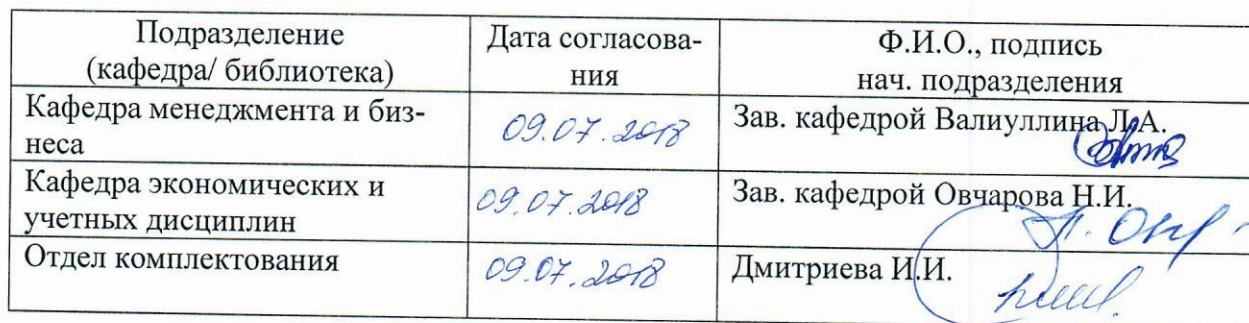 Подразделение
(кафедра/ библиотека)
Дата согласова-
ния
Ф.И.О., подпись
нач. подразделения
Кафедра менеджмента и биз-
неса
09.07.2018
Зав. кафедрой Валиуллина Л.А.
Кафедра экономических и
учетных дисциплин
09.07.2018
Зав. кафедрой Овчарова Н.И.
Отдел комплектования
09.07.2018
Дмитриева И.И.